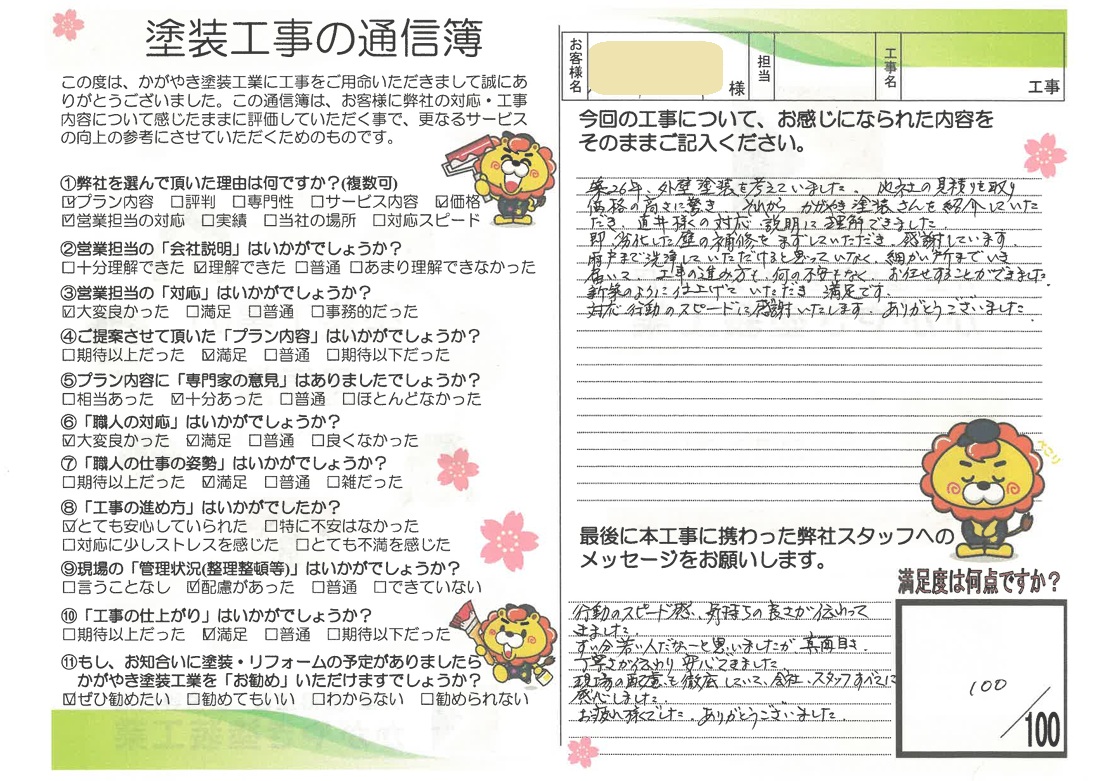 塗装工事の通信簿
この度は、かがやき塗装工業に工事をご用命いただきまして誠にあ
りがとうございました。この通信簿は、お客様に弊社の対応・工事
内容について感じたままに評価していただく事で、更なるサービス
の向上の参考にさせていただくためのものです。
①弊社を選んで頂いた理由は何ですか？(複数可)
☑プラン内容 □評判 □専門性 □サービス内容 ☑価格
☑営業担当の対応 □実績 □当社の場所 □対応スピード
②営業担当の「会社説明」はいかがでしょうか？
□十分理解できた ☑理解できた □普通 □あまり理解できなかった
③営業担当の「対応」はいかがでしょうか？
☑大変良かった □満足 □普通 □事務的だった
④ご提案させて頂いた「プラン内容」はいかがでしょうか？
□期待以上だった ☑満足 □普通 □期待以下だった
⑤プラン内容に「専門家の意見」はありましたでしょうか？
□相当あった ☑十分あった □普通 □ほとんどなかった
⑥「職人の対応」はいかがでしょうか？
☑大変良かった ☑満足 □普通 □良くなかった
⑦「職人の仕事の姿勢」はいかがでしょうか？
□期待以上だった ☑満足 □普通 □雑だった
⑧「工事の進め方」はいかがでしたか？
☑とても安心していられた □特に不安はなかった
□対応に少しストレスを感じた □とても不満を感じた
⑨現場の「管理状況(整理整頓等)」はいかがでしょうか？
□言うことなし ☑配慮があった □普通 □できていない
⑩「工事の仕上がり」はいかがでしょうか？
□期待以上だった ☑満足 □普通 □期待以下だった
⑪もし、お知合いに塗装・リフォームの予定がありましたら
かがやき塗装工業を「お勧め」いただけますでしょうか？
☑ぜひ勧めたい □勧めてもいい □わからない □勧められない
お客様名 様 担当 工事名 工事
今回の工事について、お感じになられた内容を
そのままご記入ください。
築26年、外壁塗装を考えていました。他社の見積りを取り
価格の高さに驚き それから かがやき塗装さんを紹介していた
だき、直井様の対応 説明に理解できました
即、劣化した壁の補修をまずしていただき、感謝しています。
雨戸まで洗浄していただけると思っていなく、細かい所までいき
届いて、工事の進み方も、何の不安もなく、お任せすることができました。
新築のように仕上げていただき 満足です。
対応 行動のスピードに感謝いたします。ありがとうございました。
ぺこり
最後に本工事に携わった弊社スタッフへの
メッセージをお願いします。
行動のスピード感、気持ちの良さが伝わって
きました。
ずい分若い人だなーと思いましたが 真面目さ、
丁寧さが伝わり 安心できました。
現場の配慮も徹底していて、会社、スタッフすべてに
感心しました。
お疲れ様でした。ありがとうございました。
満足度は何点ですか？
100
/100